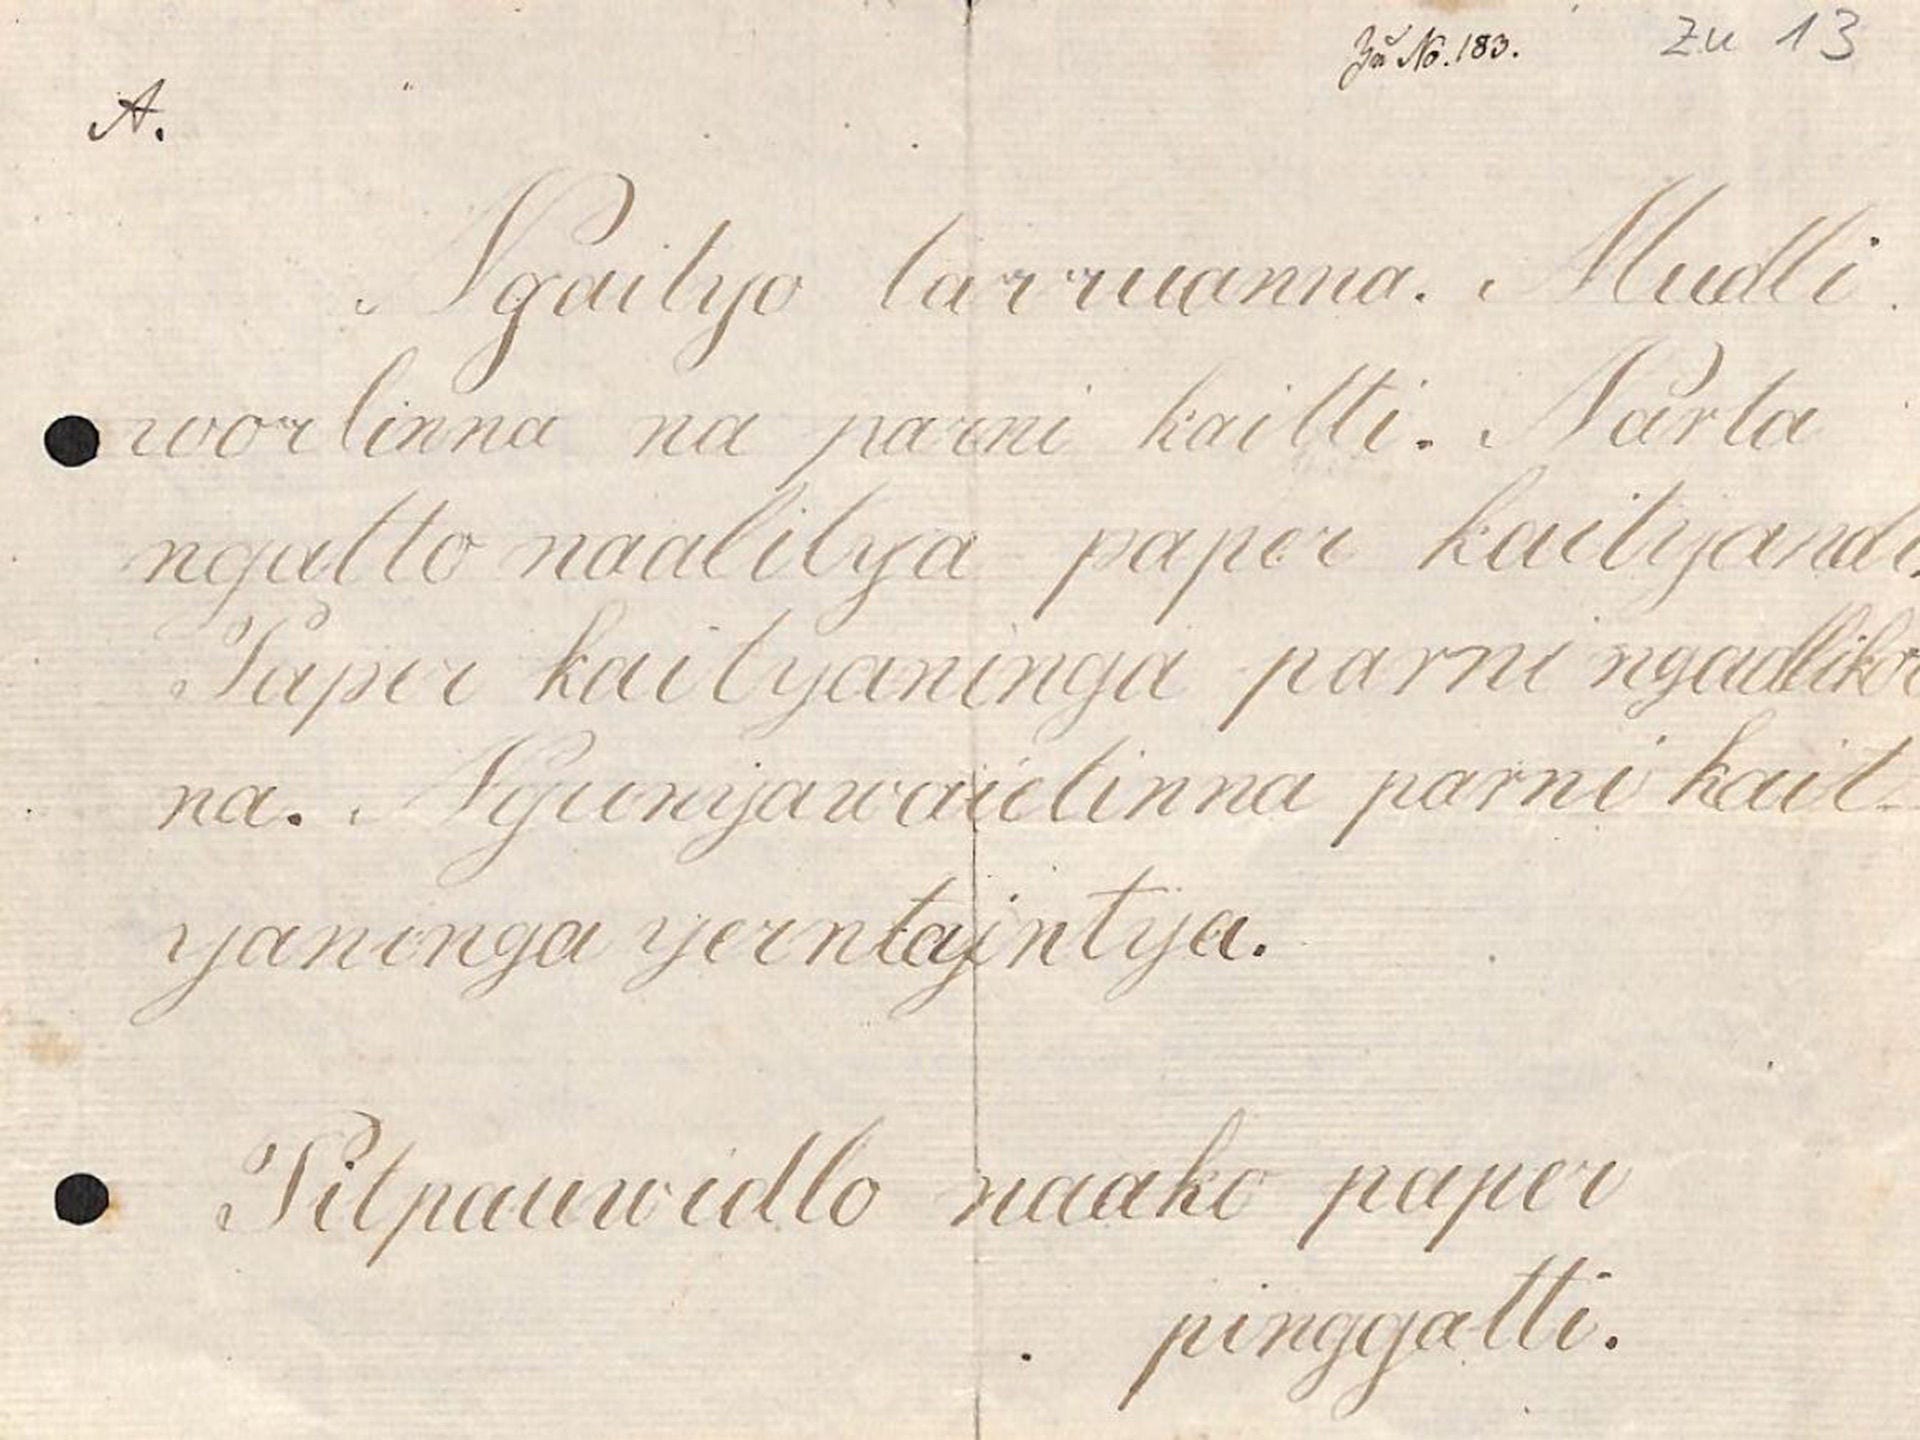 Zu No. 183.
zu 13
A.
Ngaityo tarruanna. Mudli
worlinna na parni kaitti. Narta
ngatto naalitya paper kaityandi.
Paper kaityaninga parni ngadliko
na. Ngunyawaietinna parni kait-
yaninga yerntayintya.
Pitpauwidlo naako paper
pinggatti.